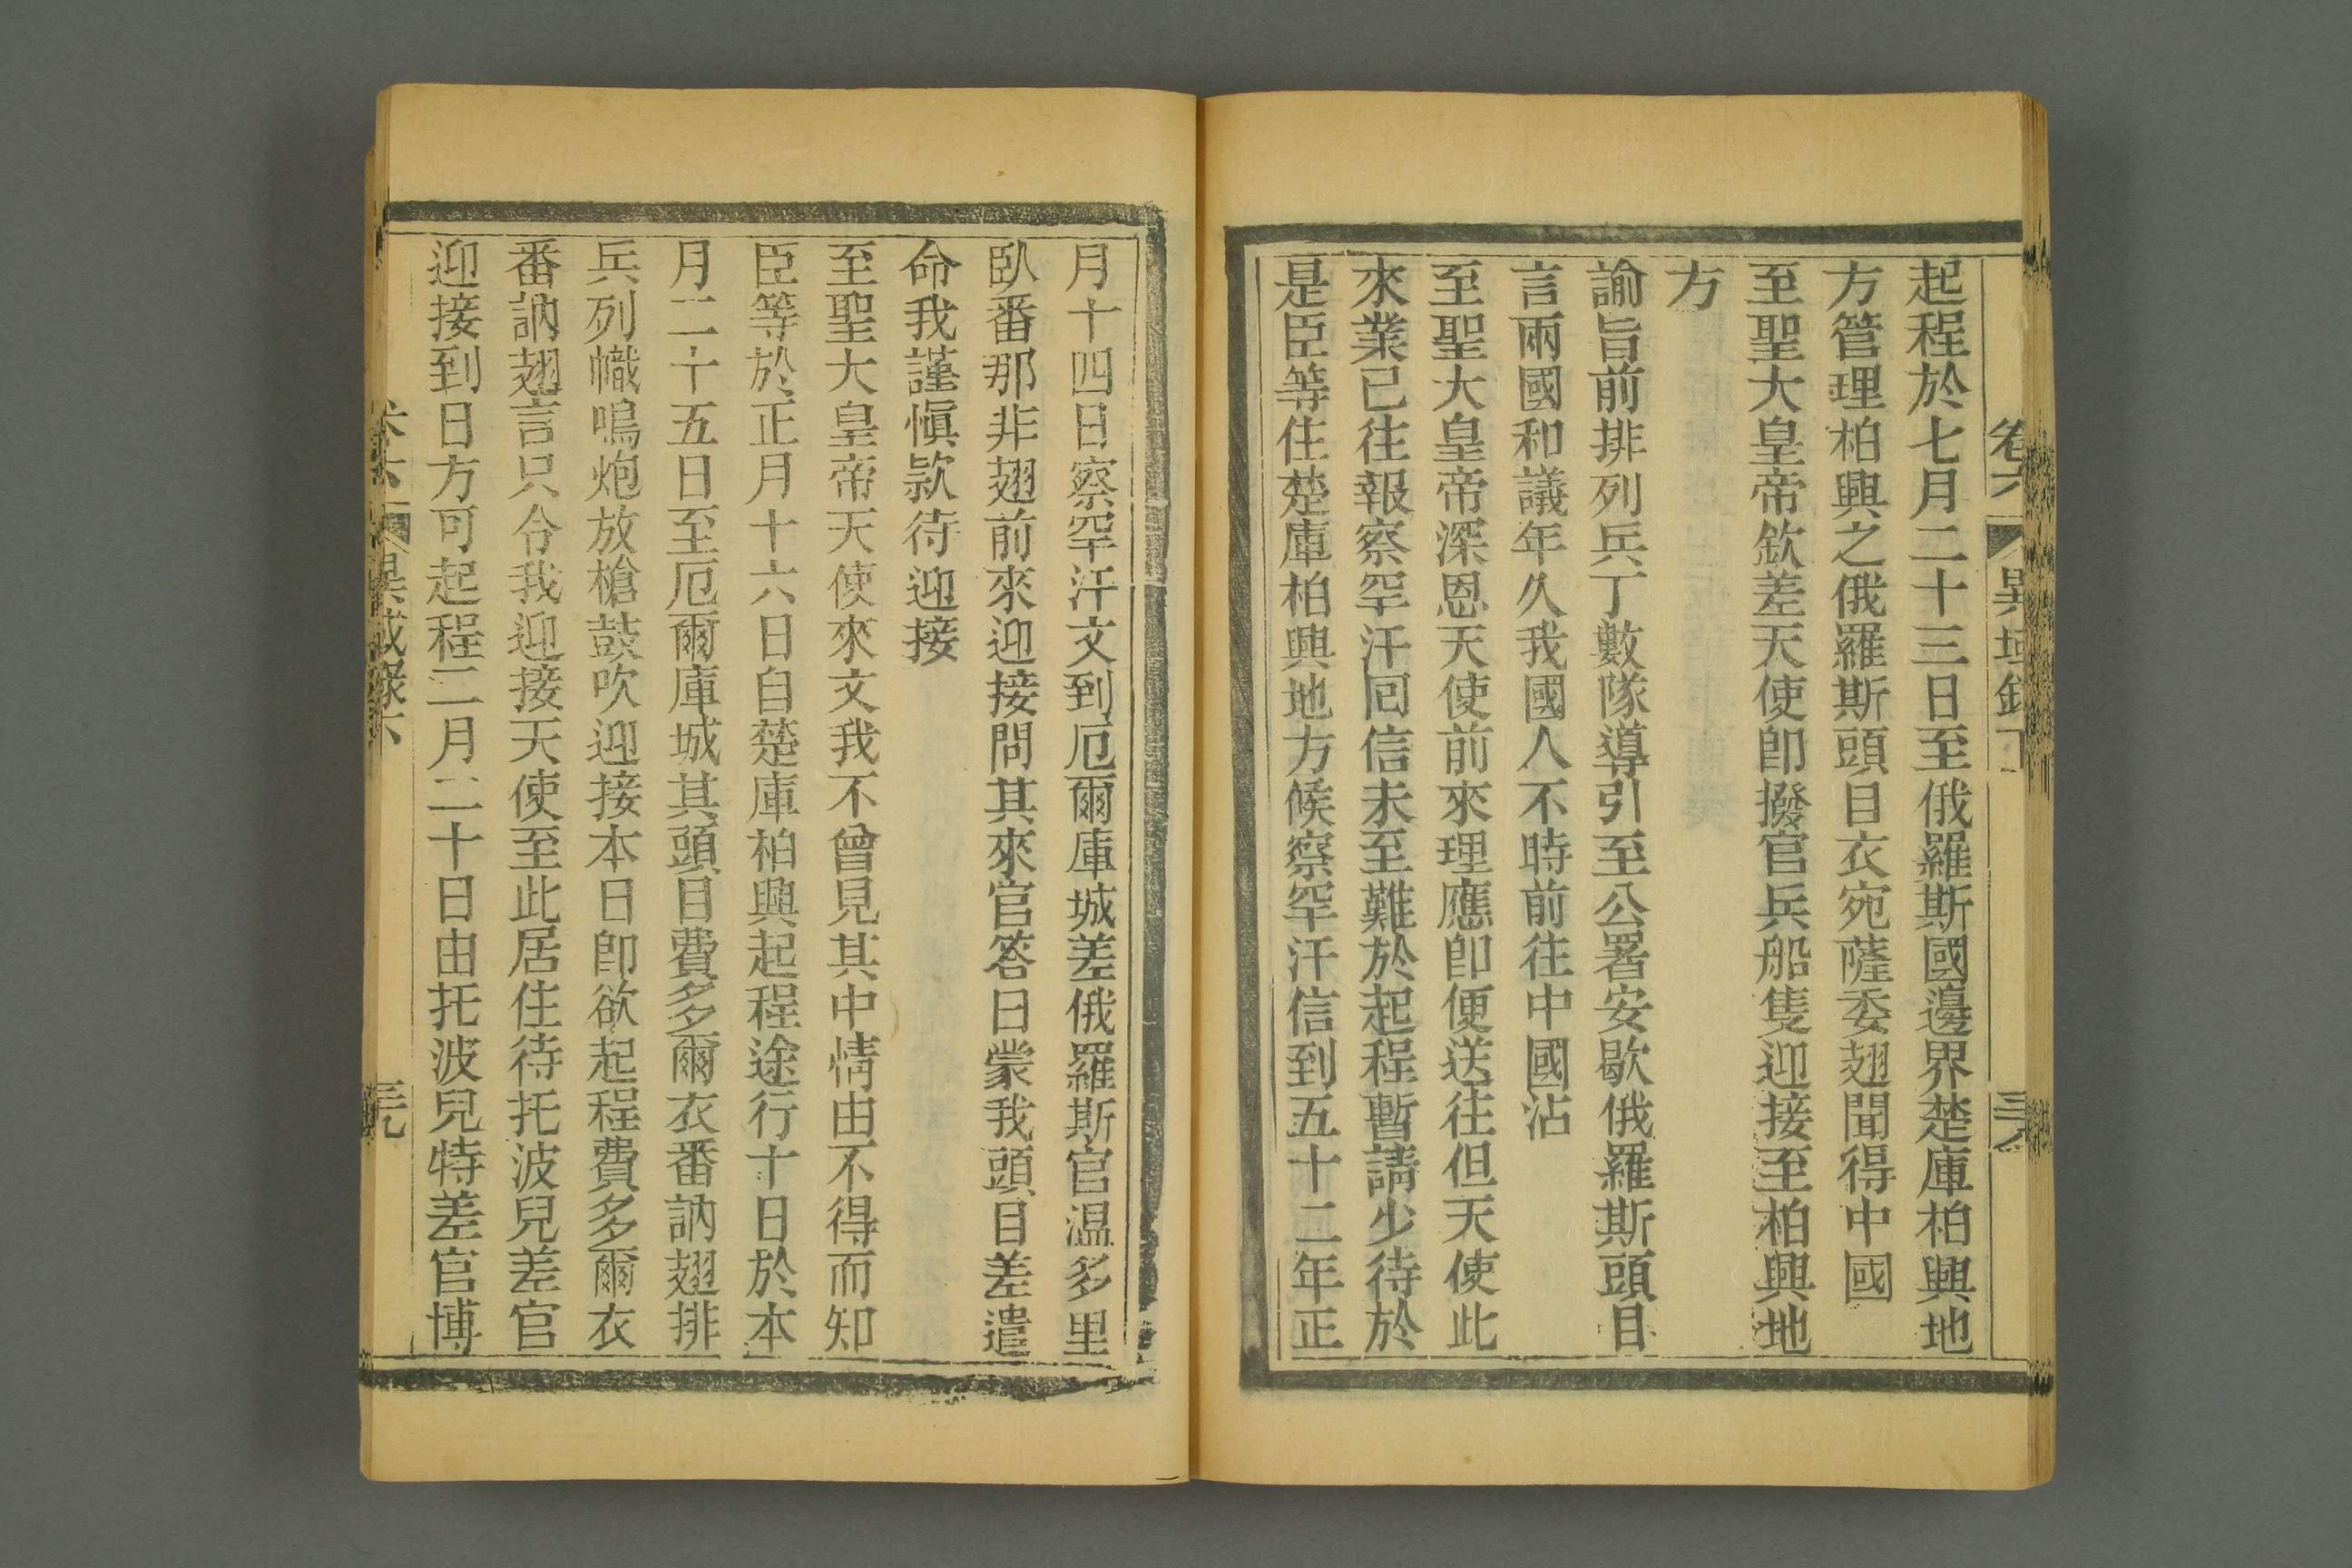 卷六
異域錄下
起程於七月二十三日至俄羅斯國邊界楚庫柏興地
方管理柏興之俄羅斯頭目衣宛薩委翅聞得中國
至聖大皇帝欽差天使卽撥官兵船隻迎接至柏興地
方
諭旨前排列兵丁數隊導引至公署安歇俄羅斯頭目
言兩國和議年久我國人不時前往中國沾
至聖大皇帝深恩天使前來理應卽便送往但天使此
來業已往報察罕汗回信未至難於起程暫請少待於
是臣等住楚庫柏興地方候察罕汗信到五十二年正
月十四日察罕汗文到厄爾庫城差俄羅斯官温多里
臥番那非翅前來迎接問其來官答曰蒙我頭目差遣
命我謹愼欵待迎接
至聖大皇帝天使來文我不曾見其中情由不得而知
臣等於正月十六日自楚庫柏興起程途行十日於本
月二十五日至厄爾庫城其頭目費多爾衣番訥翅排
兵列幟鳴炮放槍鼓吹迎接本日卽欲起程費多爾衣
番訥翅言只令我迎接天使至此居住待托波兒差官
迎接到日方可起程二月二十日由托波兒特差官博
卷六
異域錄下
三九